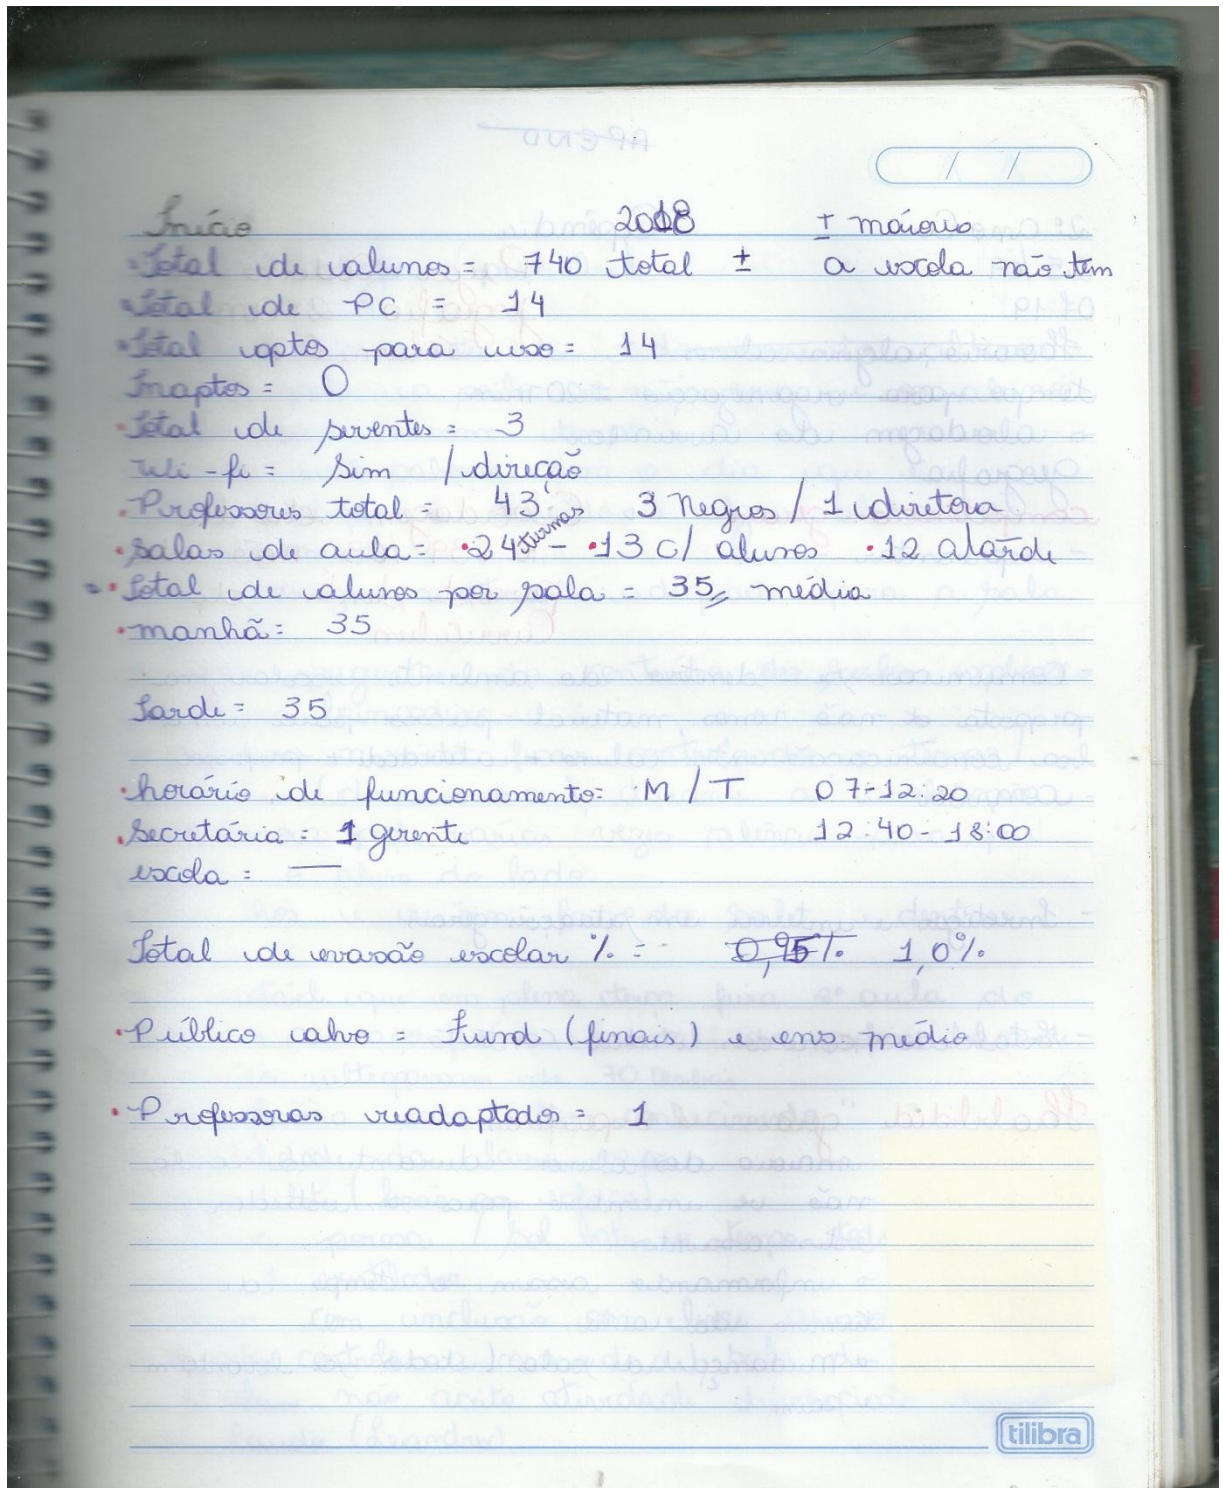 Início 2018 ± maiorio
Total de alunos = 740 total ± a escola não tem
Total de PC = 14
Total aptos para uso = 14
Inaptos = 0
Total de serventes = 3
Wi-fi = Sim / direção
Professores total = 43, 3 Negros / 1 diretora
Salas de aula = 24 turmas - 13 c/ alunos 12 a tarde
Total de alunos por sala = 35 média
manhã = 35
Tarde = 35
horário de funcionamento: M / T 07-12:20
Secretária = 1 gerente 12:40 - 18:00
escola = —
Total de evasão escolar % = 0,95% 1,0%
Público alvo = Fund (finais) e ens. médio
Professoras readaptados = 1
tilibra